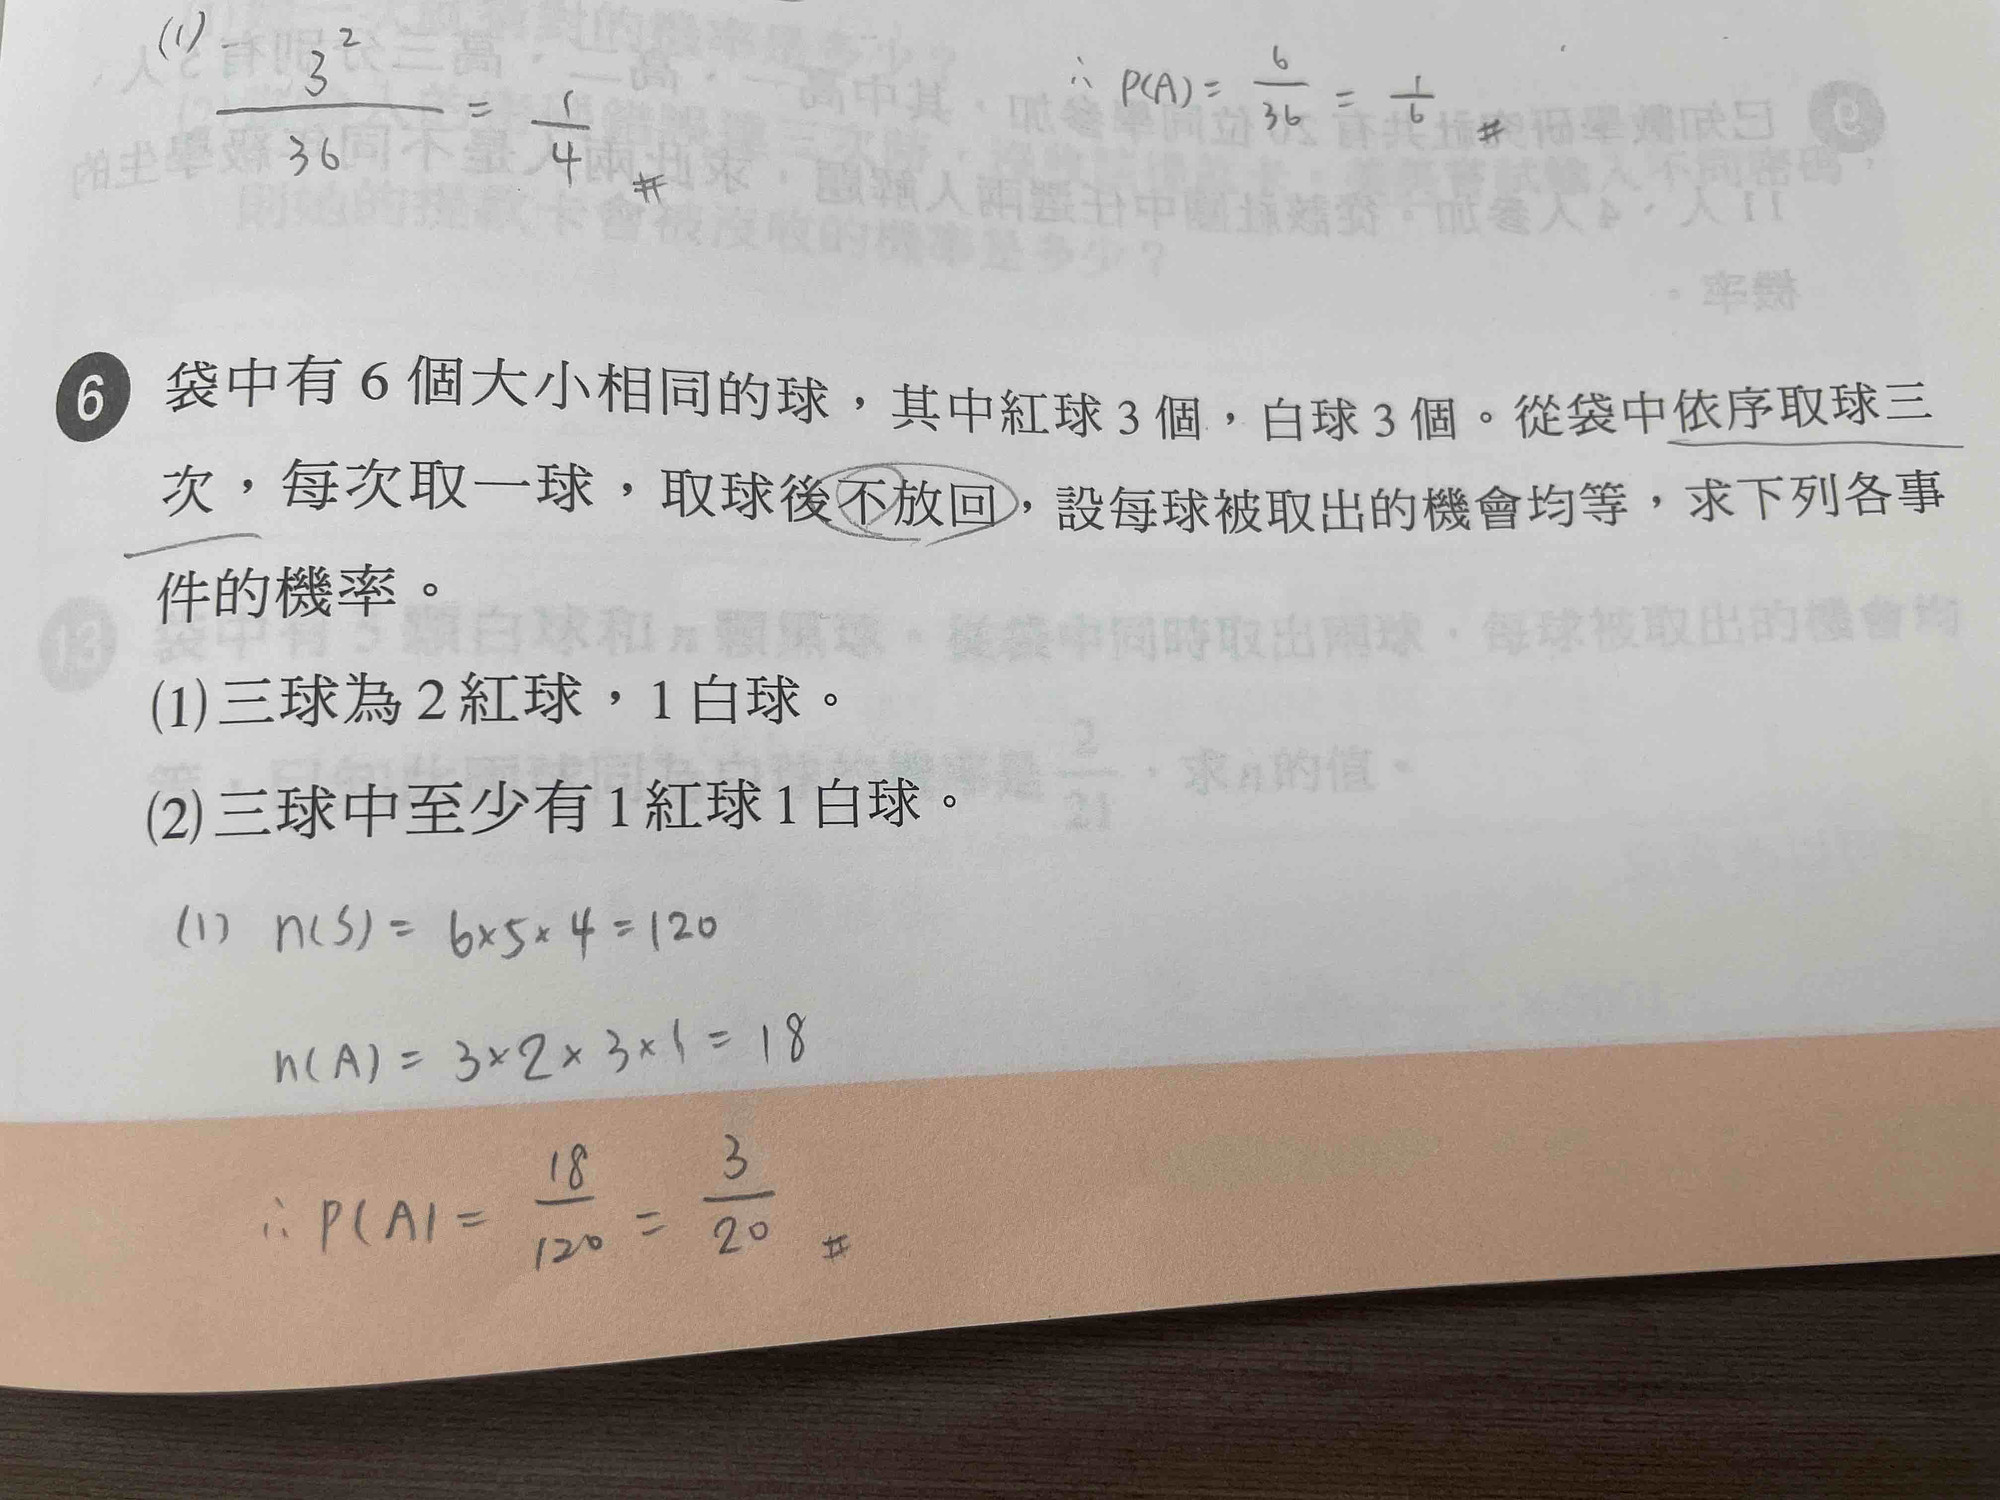 (1) 3² / 36 = 1/4 #
∴ P(A) = 6/36 = 1/6 #
6 袋中有 6 個大小相同的球，其中紅球 3 個，白球 3 個。從袋中依序取球三
次，每次取一球，取球後不放回，設每球被取出的機會均等，求下列各事
件的機率。
(1) 三球為 2 紅球，1 白球。
(2) 三球中至少有 1 紅球 1 白球。
(1) n(S) = 6×5×4 = 120
n(A) = 3×2×3×1 = 18
∴ P(A) = 18/120 = 3/20 #